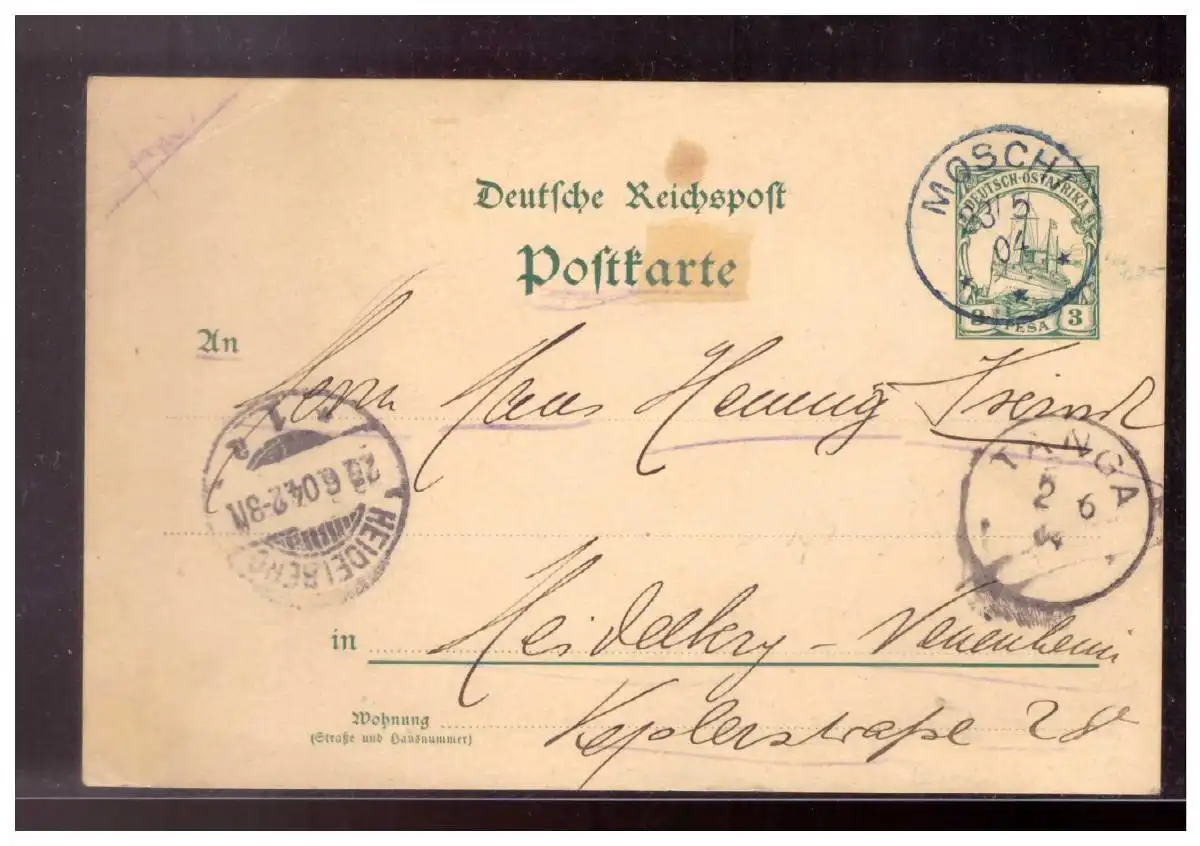 Deutsche Reichspost
Postkarte
MOSCHI
23/5
04
DEUTSCH-OSTAFRIKA
3 PESA 3
An
Herrn Hans Henning
TANGA
2 6
HEIDELBERG
6.04.2-3N
in Heidelberg - Neuenheim
Wohnung
(Straße und Hausnummer)
Keplerstraße 28